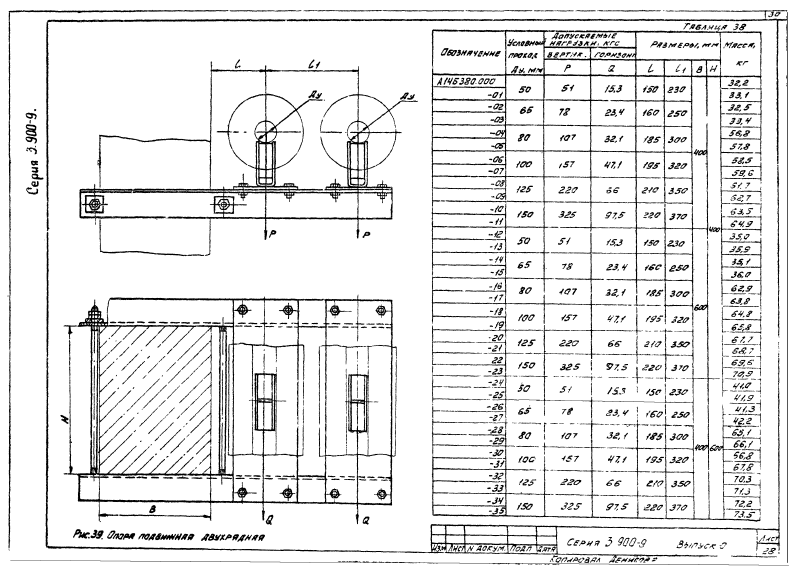 30
Серия 3.900-9.
Таблица 38
Обозначение | Условный проход Ду, мм | Допускаемые нагрузки, кгс | Размеры, мм | Масса, кг
вертик. P | горизонт Q | L | L1 | B | H
А14Б380.000 | 50 | 51 | 15,3 | 150 | 230 | 400 | 400 | 32,2
-01 | 33,1
-02 | 65 | 78 | 23,4 | 160 | 250 | 32,5
-03 | 33,4
-04 | 80 | 107 | 32,1 | 185 | 300 | 56,8
-05 | 57,8
-06 | 100 | 157 | 47,1 | 195 | 320 | 58,5
-07 | 59,6
-08 | 125 | 220 | 66 | 210 | 350 | 61,7
-09 | 62,7
-10 | 150 | 325 | 97,5 | 220 | 370 | 63,5
-11 | 64,9
-12 | 50 | 51 | 15,3 | 150 | 230 | 600 | 35,0
-13 | 35,9
-14 | 65 | 78 | 23,4 | 160 | 250 | 35,1
-15 | 36,0
-16 | 80 | 107 | 32,1 | 185 | 300 | 62,9
-17 | 63,8
-18 | 100 | 157 | 47,1 | 195 | 320 | 64,8
-19 | 65,8
-20 | 125 | 220 | 66 | 210 | 350 | 67,7
-21 | 68,7
22 | 150 | 325 | 97,5 | 220 | 370 | 69,6
-23 | 70,9
-24 | 50 | 51 | 15,3 | 150 | 230 | 400 | 600 | 41,0
-25 | 41,9
-26 | 65 | 78 | 23,4 | 160 | 250 | 41,3
-27 | 42,2
-28 | 80 | 107 | 32,1 | 185 | 300 | 65,1
-29 | 66,1
-30 | 100 | 157 | 47,1 | 195 | 320 | 66,8
-31 | 67,8
-32 | 125 | 220 | 66 | 210 | 350 | 70,3
-33 | 71,3
-34 | 150 | 325 | 97,5 | 220 | 370 | 72,2
-35 | 73,5
L L1
Ду Ду
P P
H
B Q Q
Рис.39. Опора подвижная двухрядная
Изм Лист N докум. Подп Дата
Серия 3 900-9 Выпуск 0
Лист
28
Копировал